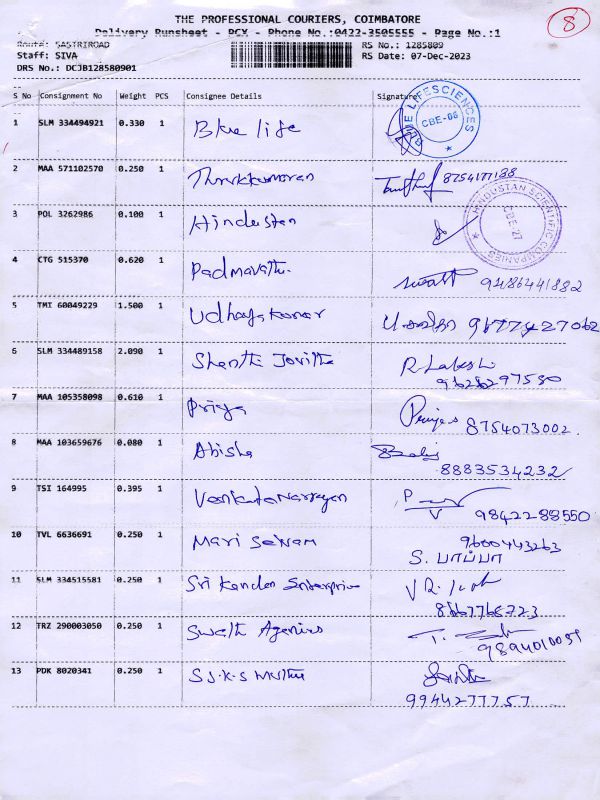 8
THE PROFESSIONAL COURIERS, COIMBATORE
Delivery Runsheet - PCX - Phone No.:0422-3505555 - Page No.:1
Route: SASTRIROAD RS No.: 1285809
Staff: SIVA RS Date: 07-Dec-2023
DRS No.: DCJB128580901
S No Consignment No Weight PCS Consignee Details Signature
LIFESCIENCES
CBE-06
1 SLM 334494921 0.330 1 Blue life
2 MAA 571102570 0.250 1 Thirukkumaran 8754177138
HINDUSTAN SCIENTIFIC COMPANIES
CBE-27
3 POL 3262986 0.100 1 Hindustan
4 CTG 515370 0.620 1 Padmavathi 9486441882
5 TMI 60049229 1.500 1 Udhayakumar
6 SLM 334489158 2.090 1 Shanthi R. Lakshi
9628297580
7 MAA 105358098 0.610 1 Priya 8754073002
8 MAA 103659676 0.080 1 Abisha
8883534232
9 TSI 164995 0.395 1 Venkatanarayan
9842288550
10 TVL 6636691 0.250 1 Mari Selvam 9600443263
S. பாப்பா
11 SLM 334515581 0.250 1 Sri Kandan Enterprise
8667765723
12 TRZ 290003050 0.250 1 Swathi Agencies
9894010059
13 PDK 8020341 0.250 1 S.J.K.S Muthu
9944277757